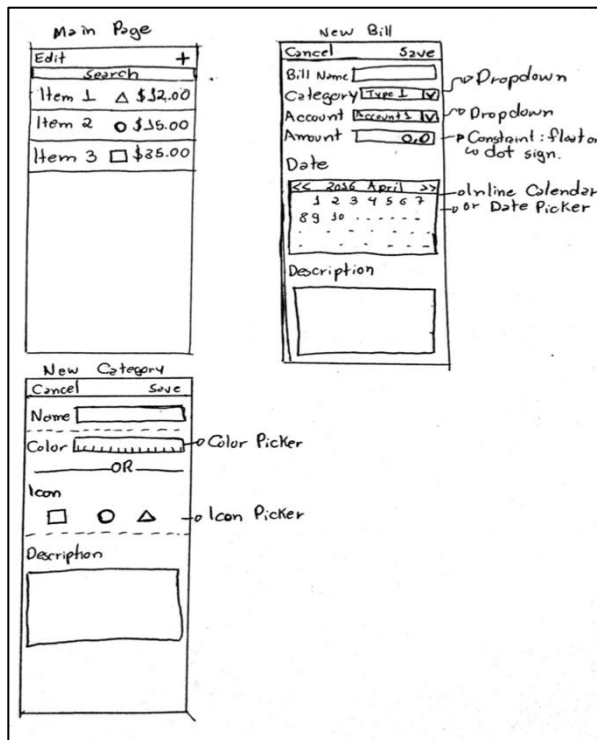 Main Page
Edit +
Search
Item 1 $12.00
Item 2 $15.00
Item 3 $35.00
New Bill
Cancel Save
Bill Name
Category Type 1 Dropdown
Account Account1 Dropdown
Amount 0,0 Constraint: float on
dot sign.
Date
<< 2016 April >> Inline Calendar
1 2 3 4 5 6 7 or Date Picker
8 9 10 . . . . . .
Description
New Category
Cancel Save
Name
Color Color Picker
OR
Icon
Icon Picker
Description